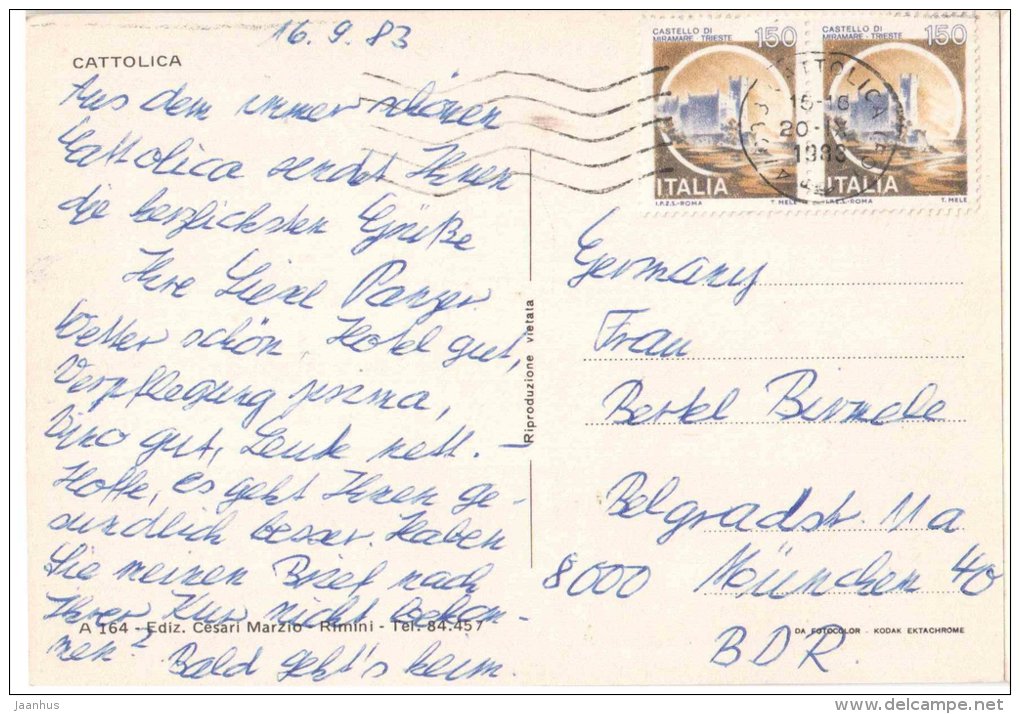 16.9.83
CATTOLICA
Aus dem immer schönen
Cattolica sendet Ihnen
die herzlichsten Grüße
Ihre Liesl Panzer
Wetter schön, Hotel gut,
Verpflegung prima,
Vino gut, Leute nett. –
Hoffe, es geht Ihnen ge-
sundlich besser. Haben
Sie meinen Brief nach
Ihrer Kur nicht bekom-
men? Bald geht's heim.
A 164 - Ediz. Cesari Marzio - Rimini - Tel. 84.457
Riproduzione vietata
CASTELLO DI
MIRAMARE - TRIESTE
150
ITALIA
I.P.Z.S.-ROMA T. MELE
CASTELLO DI
MIRAMARE - TRIESTE
150
ITALIA
I.P.Z.S.-ROMA T. MELE
CATTOLICA
15-16
20-IX
1983
Germany
Frau
Bertel Birmele
Belgradstr. 11a
8000 München 40
BDR.
DA FOTOCOLOR - KODAK EKTACHROME
jaanhus
delcampe.net